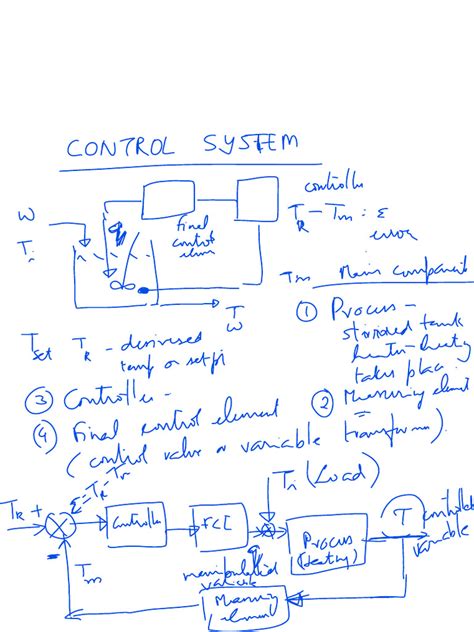 CONTROL SYSTEM
controlle
W
final
control
elem
T_R - T_m : ε
error
T_i
T_m Main component
T
W
① Process -
stirred tank
heater - heating
takes place
T_set T_R - desired
temp or setpt
③ Controller -
② Measuring element
④ Final control element
(control valve or variable transformer).
T_R - T_m
T_i (Load)
T_R +
controlle
FCE
Process
(heating)
T controlled
variable
-
T_m
manipulated
variable
Measuring
element